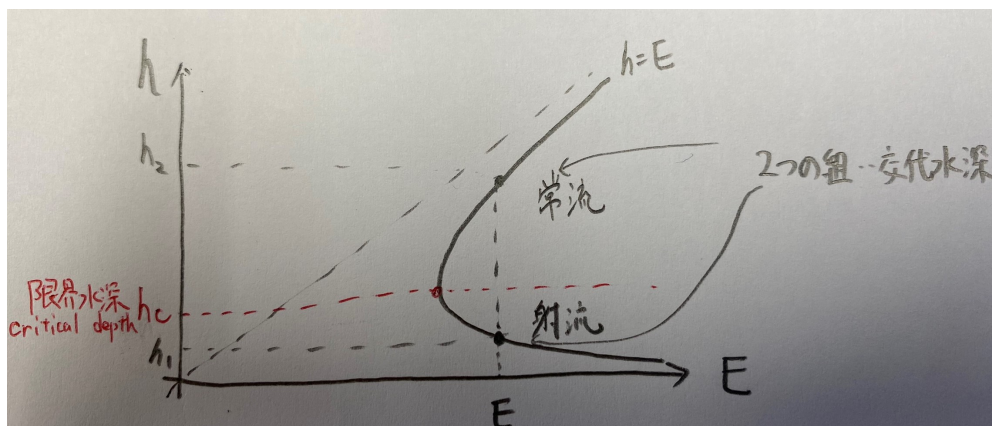 h
h=E
h₂
2つの組…交代水深
常流
限界水深 hc
critical depth
射流
h₁
E
E